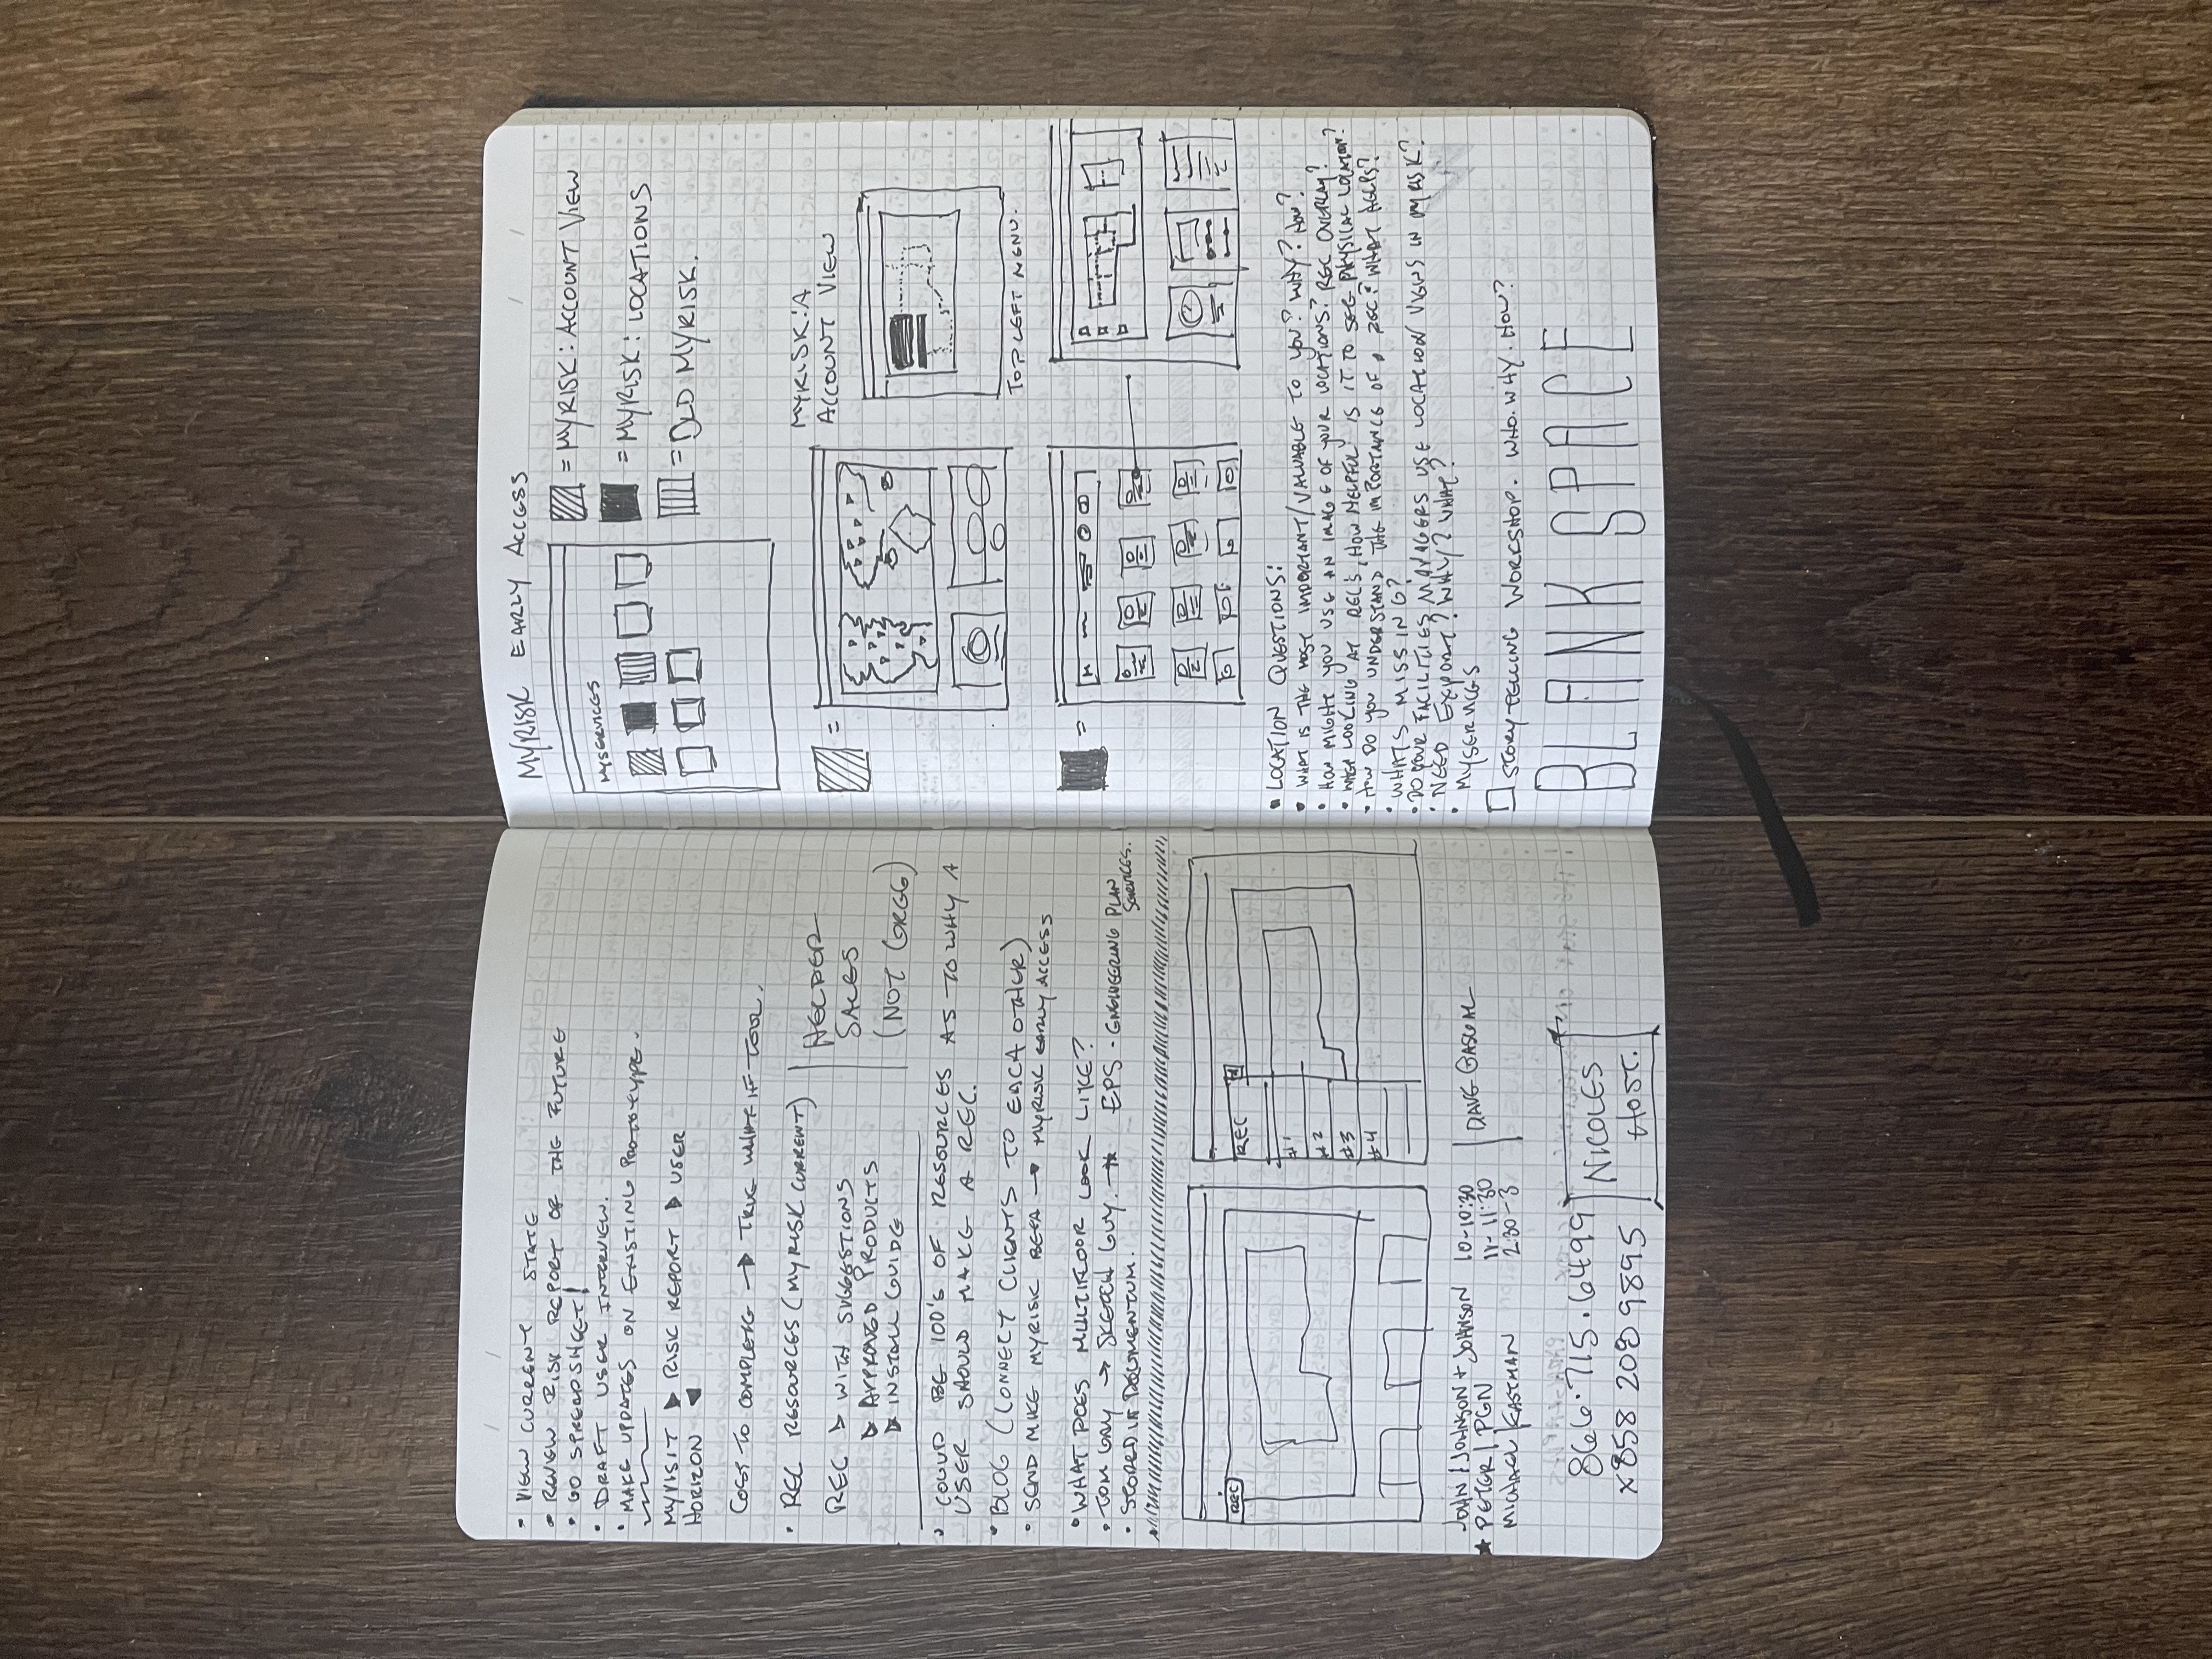 • VIEW CURRENT STATE
• REVIEW RISK REPORT OF THE FUTURE
• GO SPREADSHEET!
• DRAFT USER INTERVIEW.
• MAKE UPDATES ON EXISTING PROTOTYPE.
MYVISIT ▶ RISK REPORT ▶ USER
HORIZON
COST TO COMPLETE → TRUE WHAT IF TOOL.
• REC RESOURCES (MYRISK CURRENT)
REC ▶ WITH SUGGESTIONS
▶ APPROVED PRODUCTS
▶ INSTALL GUIDE
HELPER
SALES
(NOT GREG)
• COULD BE 100'S OF RESOURCES AS TO WHY A
USER SHOULD MAKE A REC.
• BLOG (CONNECT CLIENTS TO EACH OTHER)
• SEND MIKE MYRISK BETA → MYRISK EARLY ACCESS
• WHAT DOES MULTIFLOOR LOOK LIKE?
• TOM GRAY → SKETCH GUY. → EPS - ENGINEERING PLAN
SERVICES.
• STORED IN DOCUMENTUM.
REC
REC
#1
#2
#3
#4
JOHN | JOHNSON + JOHNSON 10-10:30
★ PETER | PGN 11-11:30
MICHAEL | EASTMAN 2:30-3
DAVE
866.715.6499
x858 208 9895
NICOLES
HOST.
MYRISK EARLY ACCESS
MYSERVICES
= MYRISK: ACCOUNT VIEW
= MYRISK: LOCATIONS
= OLD MYRISK.
=
MYRISK: A
ACCOUNT VIEW
TOP LEFT MENU.
=
• LOCATION QUESTIONS:
• WHAT IS THE MOST IMPORTANT/VALUABLE TO YOU? WHY? HOW?
• HOW MIGHT YOU USE AN IMAGE OF YOUR LOCATIONS? REC OVERLAY?
• WHEN LOOKING AT REC'S, HOW HELPFUL IS IT TO SEE PHYSICAL LOCATION?
• HOW DO YOU UNDERSTAND THE IMPORTANCE OF A REC? WHAT HELPS?
• WHATS MISSING?
• DO YOUR FACILITIES MANAGERS USE LOCATION VIEWS IN MYRISK?
• NEED EXPORT? WHY? WHAT?
• MYSERVICES
STORY TELLING WORKSHOP. WHO. WHY. HOW?
BLANK SPACE